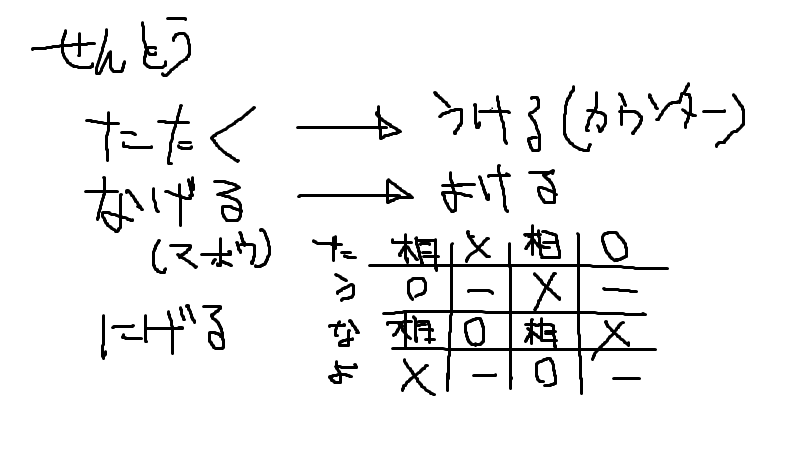 せんとう
たたく → うける(カウンター)
なげる → よける
(マホウ)
にげる
た 相 X 相 O
う O - X -
な 相 O 相 X
よ X - O -